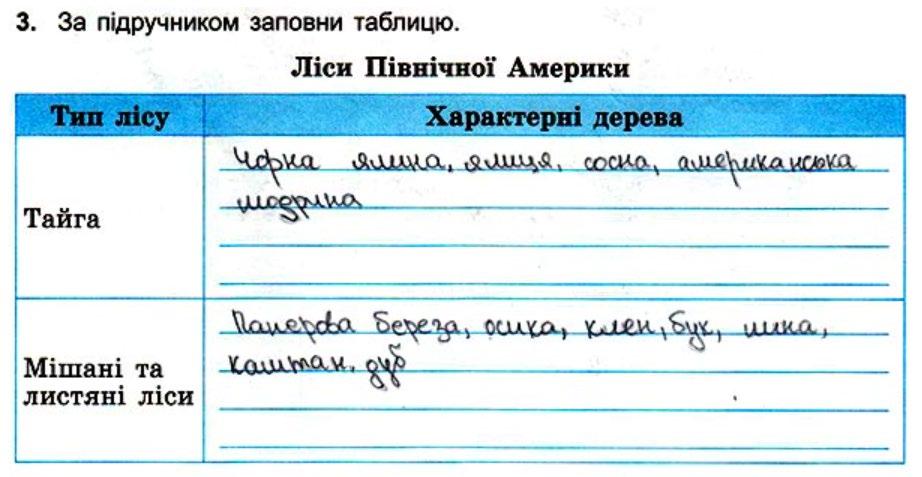 3. За підручником заповни таблицю.
Ліси Північної Америки
Тип лісу Характерні дерева
Тайга
Чорна ялина, ялиця, сосна, американська
модрина
Мішані та
листяні ліси
Паперова береза, осика, клен, бук, липа,
каштан, дуб